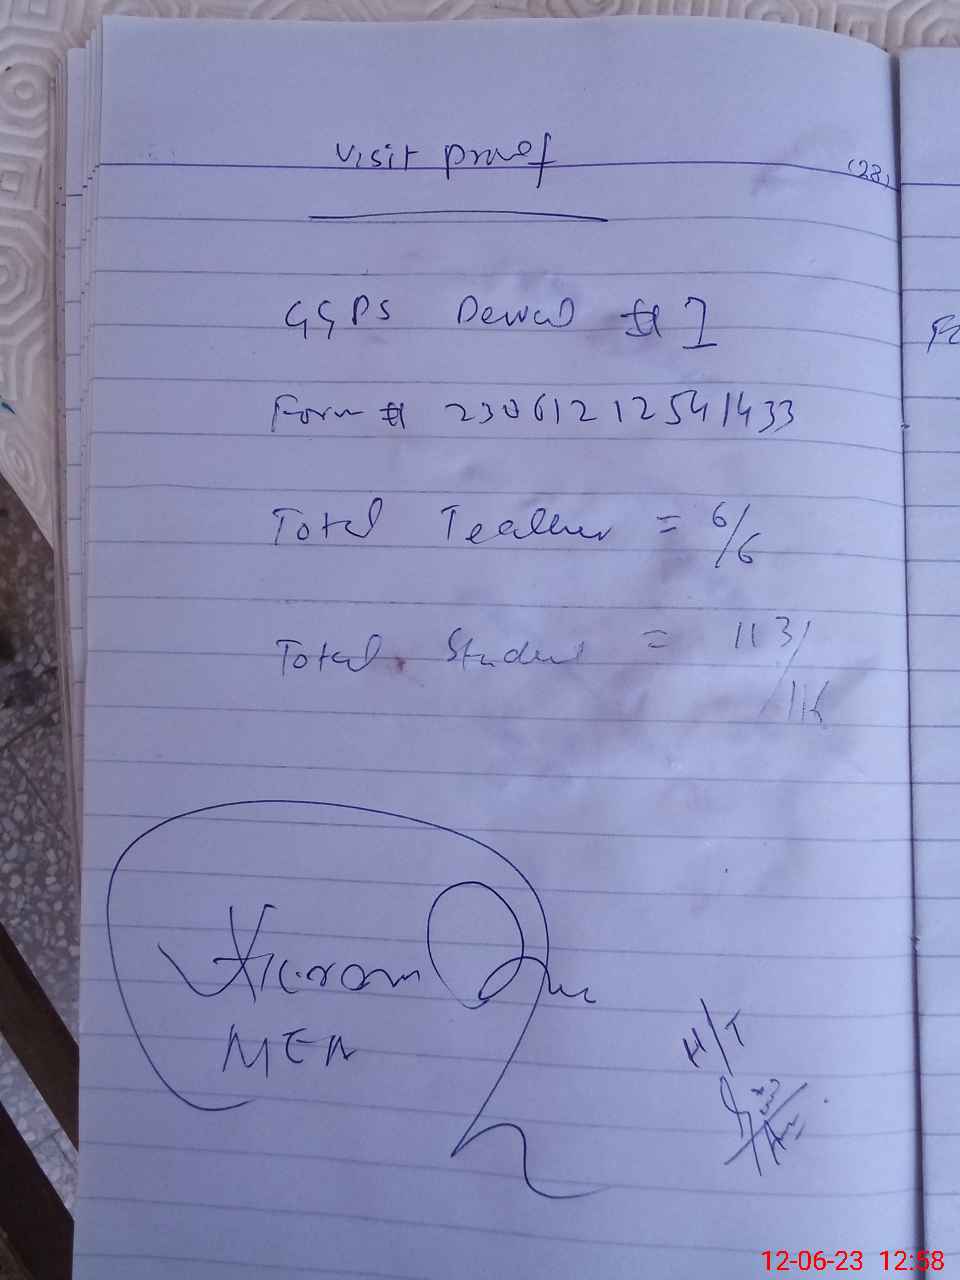 Visit proof
(28)
GGPS Dewal # 1
Form # 23061212541433
Total Teacher = 6/6
Total Student = 113/116
Ikram
MEA
H/T
12-06-23 12:58